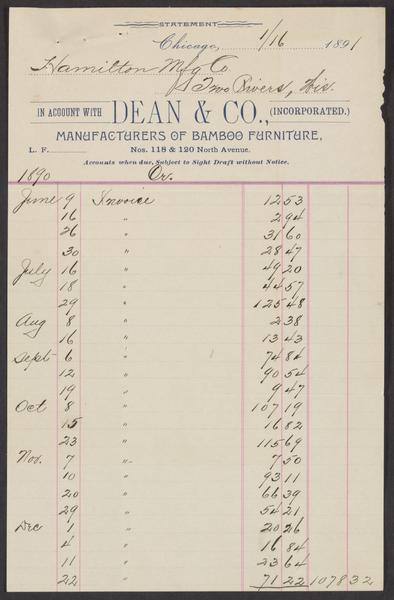 STATEMENT
Chicago, 1/16 1891
Hamilton Mfg Co
Two Rivers, Wis.
IN ACCOUNT WITH DEAN & CO., (INCORPORATED.)
MANUFACTURERS OF BAMBOO FURNITURE,
L. F. Nos. 118 & 120 North Avenue.
Accounts when due, Subject to Sight Draft without Notice.
1890 Cr.
June 9 Invoice 12 53
16 " 2 94
26 " 31 60
30 " 28 47
July 16 " 49 20
18 " 44 57
29 " 125 48
Aug 8 " 2 38
16 " 13 43
Sept 6 " 74 84
12 " 90 54
19 " 9 47
Oct 8 " 107 19
15 " 16 82
23 " 115 69
Nov. 7 " 7 50
10 " 93 11
20 " 66 39
29 " 54 21
Dec 1 " 20 26
4 " 16 84
11 " 23 64
22 " 71 22 1078 32